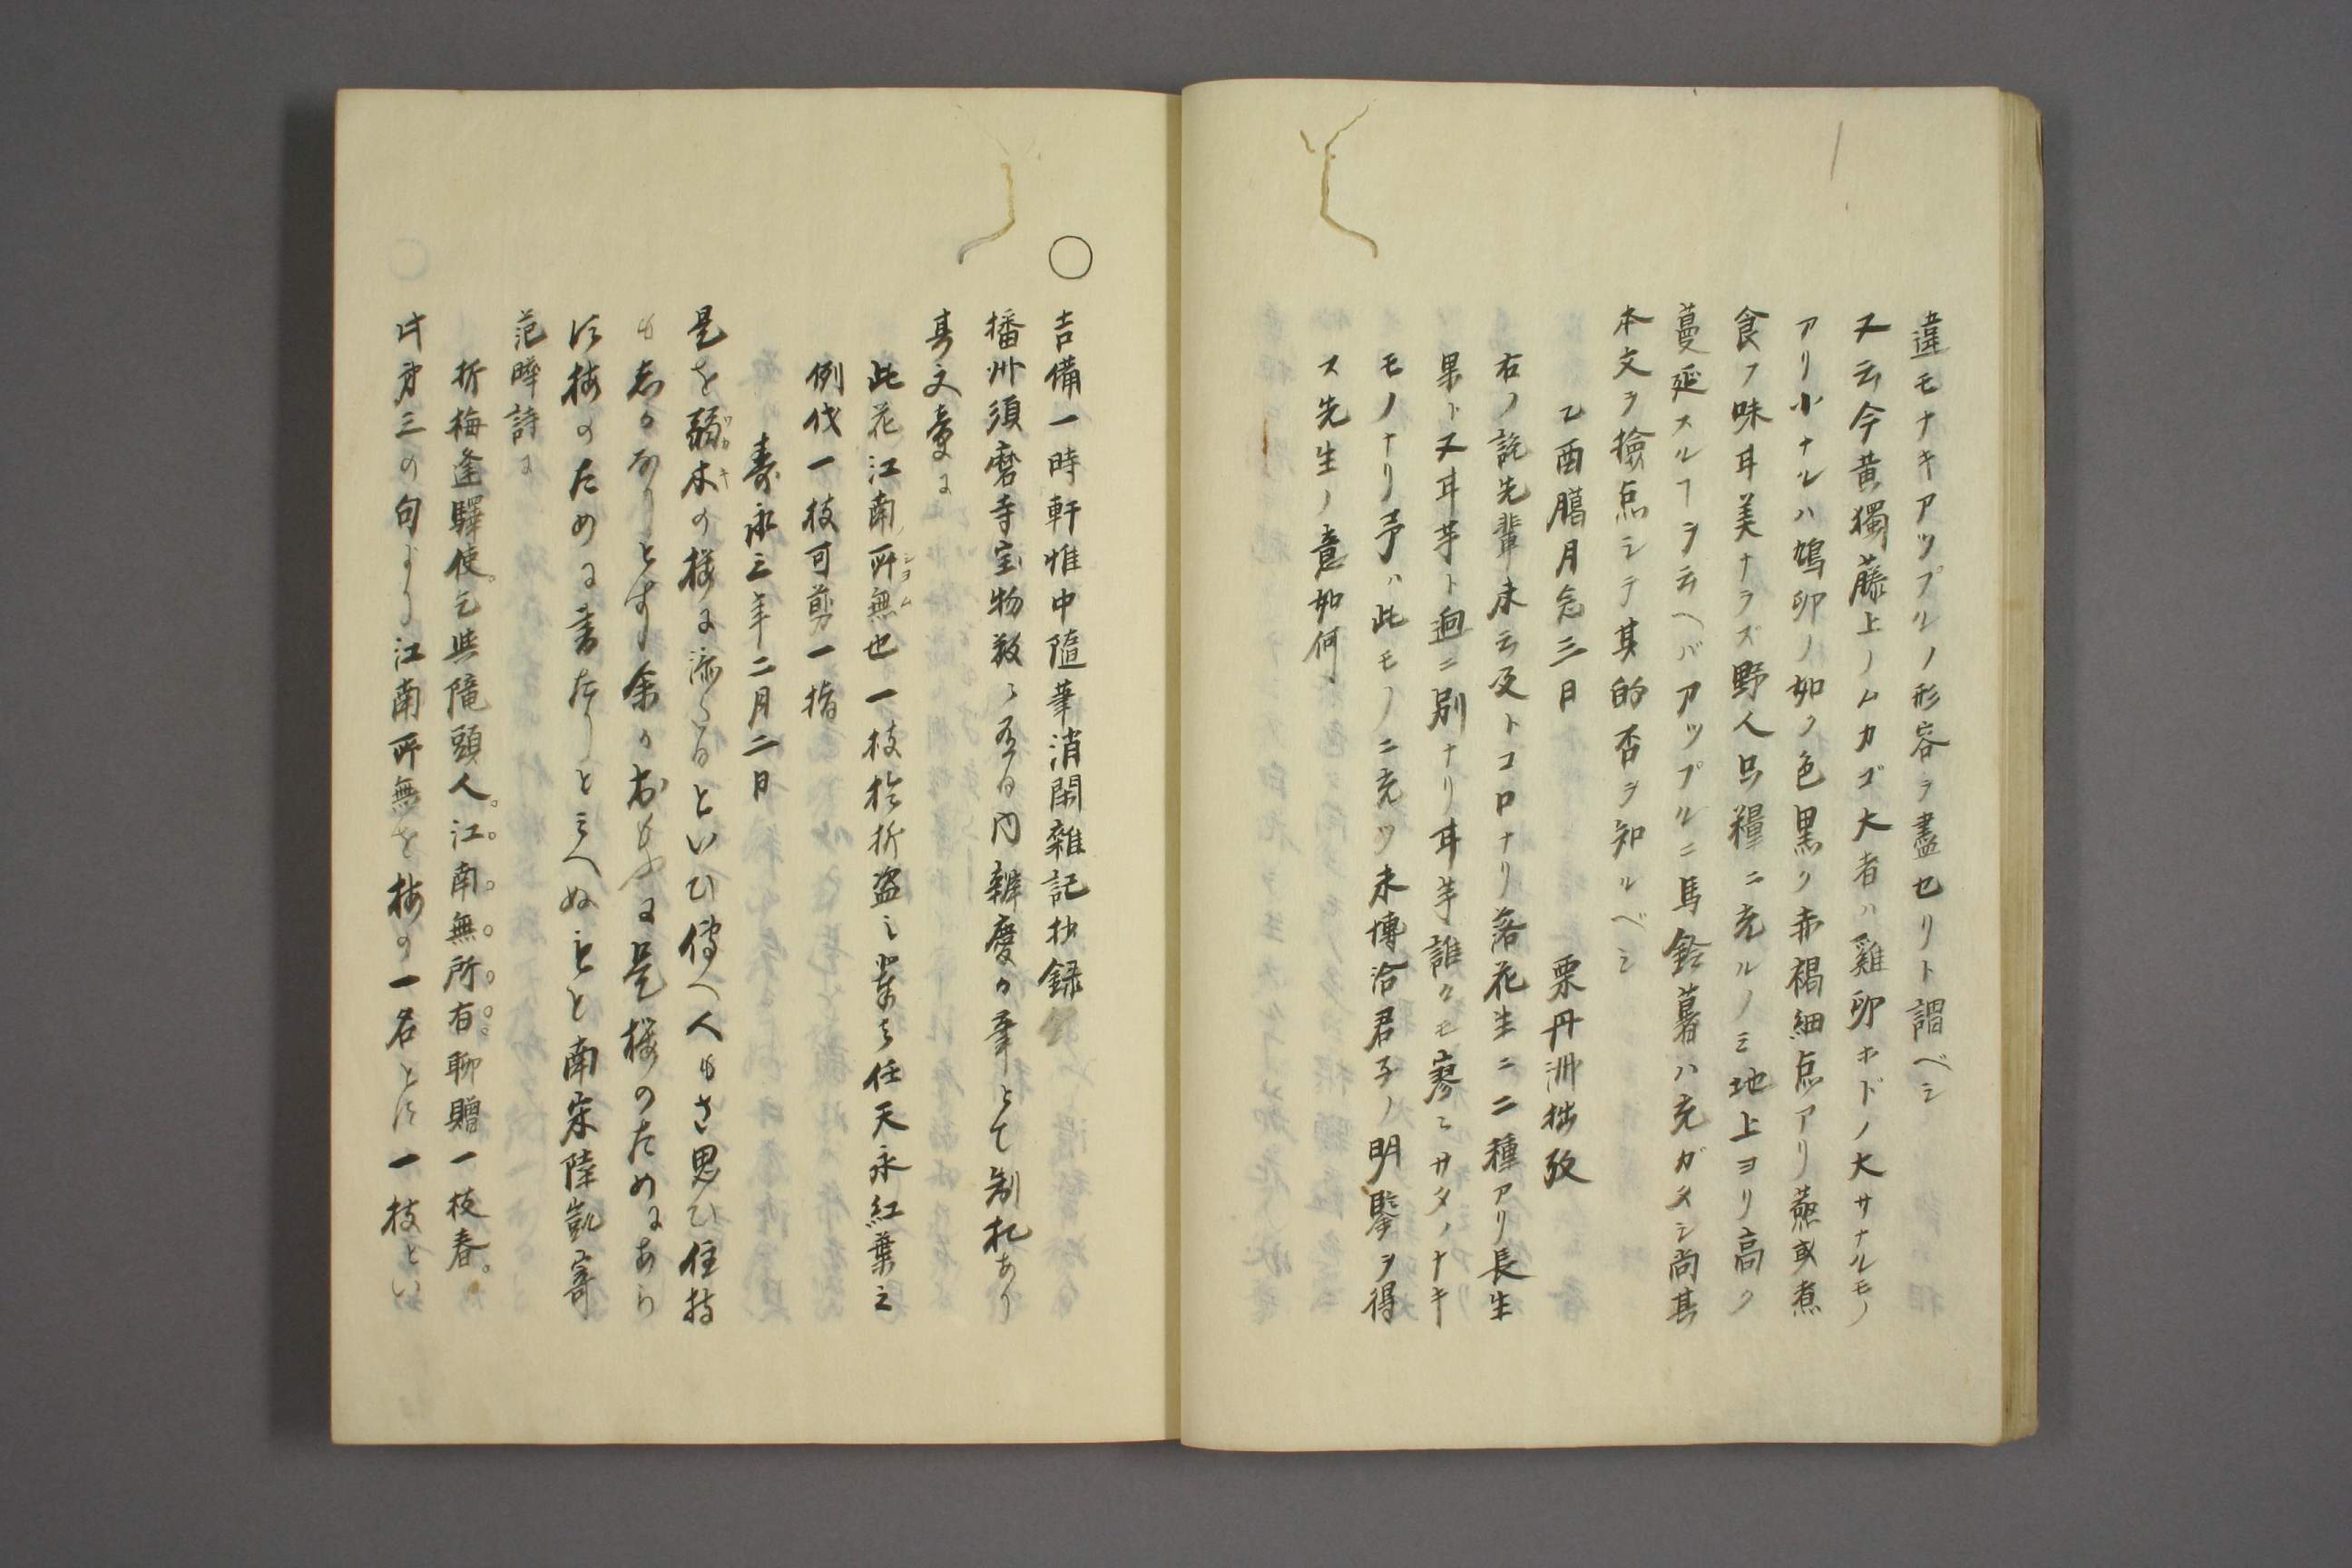 違モナキアツプルノ形容ヲ盡セリト謂ベシ
又云今黄獨藤上ノムカゴ大者ハ雞卵ホドノ大サナルモノ
アリ小ナルハ鳩卵ノ如ク色黒ク赤褐細点アリ蒸或煮
食フ味耳美ナラズ野人只糧ニ充ルノミ地上ヨリ高ク
蔓延スルヿヲ云ヘバアツプルニ馬鈴薯ハ充ガタシ尚其
本文ヲ撿点シテ其的否ヲ知ルベシ
乙酉臈月念三日
栗丹洲拙攷
右ノ説先輩未云及トコロナリ落花生ニ二種アリ長生
果ト又耳芋ト迥ニ別ナリ耳芋誰クモ寥々サタノナキ
モノナリ予ハ此モノニ充ツ未博洽君子ノ明鑒ヲ得
ス先生ノ意如何
○ 吉備一時軒惟中隨筆消閑雜記抄録
播州須磨寺宝物数々有る内辨慶か筆とて制札あり
其文章に
此花江南所無也一枝於折盗之輩者任天永紅葉之
例伐一枝可剪一指
寿永三年二月二日
是を弱木の桜に添たるといひ傳へ人もさ思ひ住持
もしかなりとす余かおもふに是桜のためにあら
す梅のために書たりとミへぬもと南宋陸凱寄
范曄詩に
折梅逢驛使。乞與隴頭人。江南無所有。聊贈一枝春。
此第三の句より江南所無を梅の一名とす一枝とい